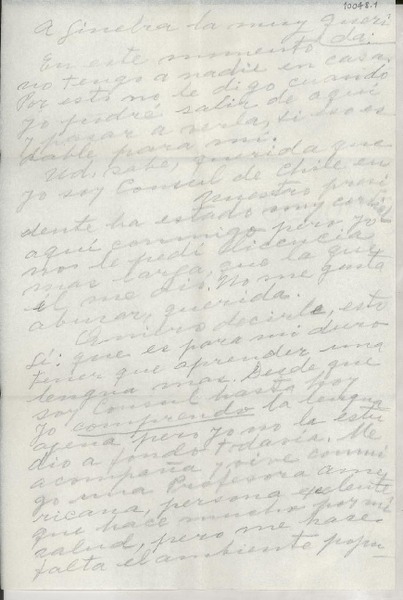 10048-1
A Ginebra la muy queri
da:
En este momento
no tengo a nadie en casa.
Por esto no le digo cuando
yo podré salir de aquí
y pasar a verla, si eso es
dable para mí.
Ud. sabe, querida que
yo soy Consul de Chile en
Nuestro presi
dente ha estado muy cordial
aquí conmigo pero yo
nos le pedí licencia
mas larga que la que
el me dió. No me gusta
abusar, querida.
decirle, esto
sí: que es para mi duro
tener que aprender una
lengua mas. Desde que
soy Consul hasta hoy
yo comprendo la lengua
ajena pero yo no la estu
dio a fondo todavía. Me
acompaña y vive conmi
go una Profesora ame
ricana, persona excelente
que hace mucho por mi
salud, pero me hace
falta el ambiente popu